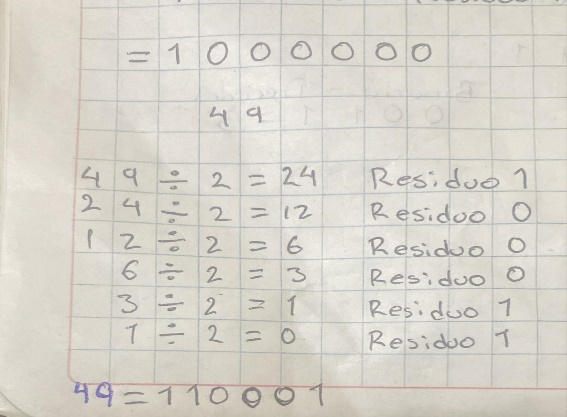 = 1 0 0 0 0 0 0
49
49 ÷ 2 = 24 Residuo 1
24 ÷ 2 = 12 Residuo 0
12 ÷ 2 = 6 Residuo 0
6 ÷ 2 = 3 Residuo 0
3 ÷ 2 = 1 Residuo 1
1 ÷ 2 = 0 Residuo 1
49 = 110001